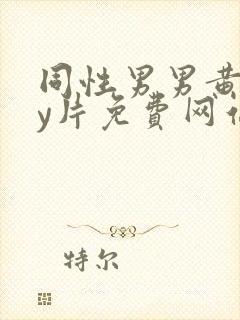 同性男男黄
y片免费网
特尔